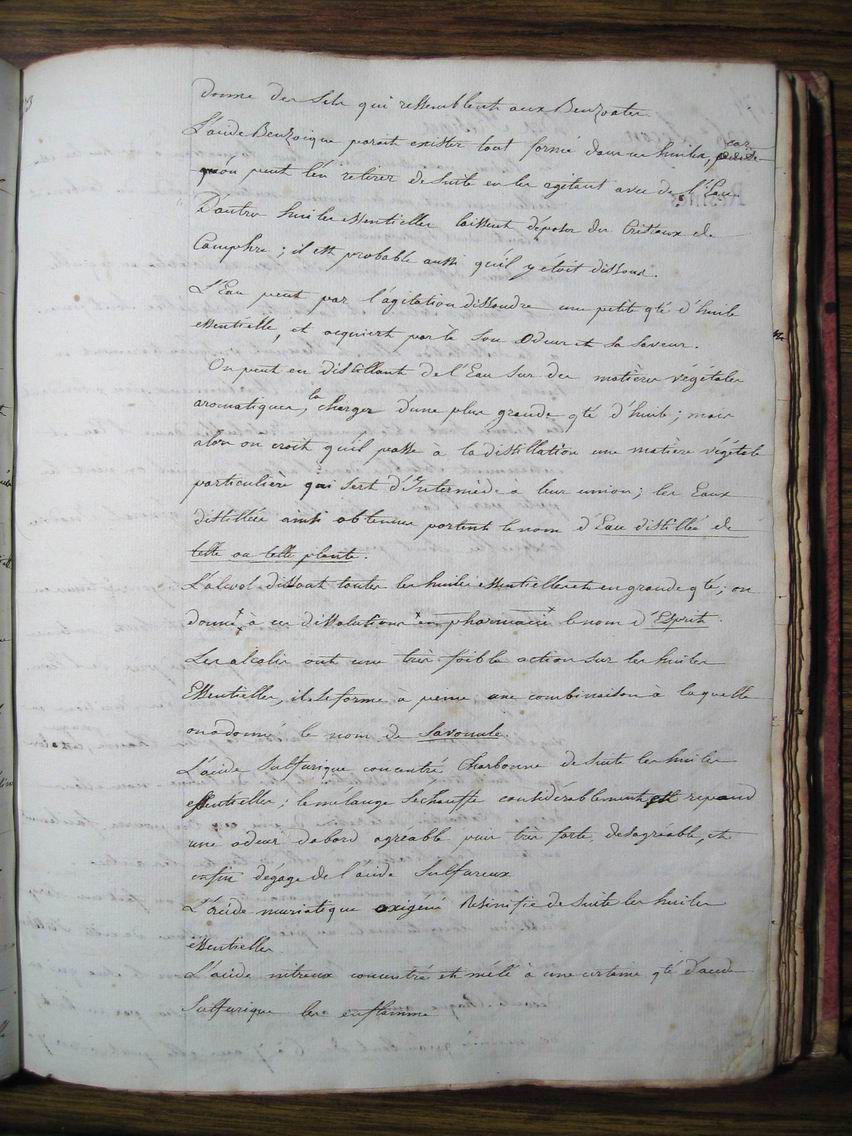 donne des sels qui ressemblent aux Benzoates
L'acide Benzoïque parait exister tout formé dans ces huiles, car
qu'on peut l'en retirer de suite en les agitant avec de l'Eau
D'autres huiles essentielles laissent déposer des Cristaux de
Camphre ; il est probable aussi qu'il y étoit dissous.
L'Eau peut par l'agitation dissoudre une petite qté d'huile
essentielle, et acquiert par là son odeur et sa saveur.
On peut en distillant de l'Eau sur des matières végétales
aromatiques, la charger d'une plus grande qté d'huile ; mais
alors on croit qu'il passe à la distillation une matière végétale
particulière qui sert d'Intermède à leur union ; les Eaux
distillées ainsi obtenues portent le nom d'Eau distillée de
telle ou telle plante.
L'alcool dissout toutes les huiles essentielles et en grande qté ; on
donne à ces dissolutions en pharmacie le nom d'Esprit.
Les alcalis ont une très foible action sur les huiles
Essentielles, il se forme à peine une combinaison à laquelle
on a donné le nom de Savonule.
L'acide Sulfurique concentré Charbonne de suite les huiles
essentielles ; le mélange s'échauffe considérablement et repand
une odeur d'abord agreable puis très forte, desagréable, et
enfin dégage de l'acide Sulfureux
L'acide muriatique oxigené Resinifie de suite les huiles
essentielles.
L'acide nitreux concentré et mêlé à une certaine qté d'acide
Sulfurique les enflamme